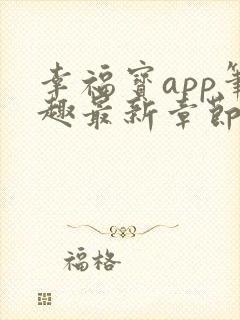 幸福宝app笔
趣最新章节
福格